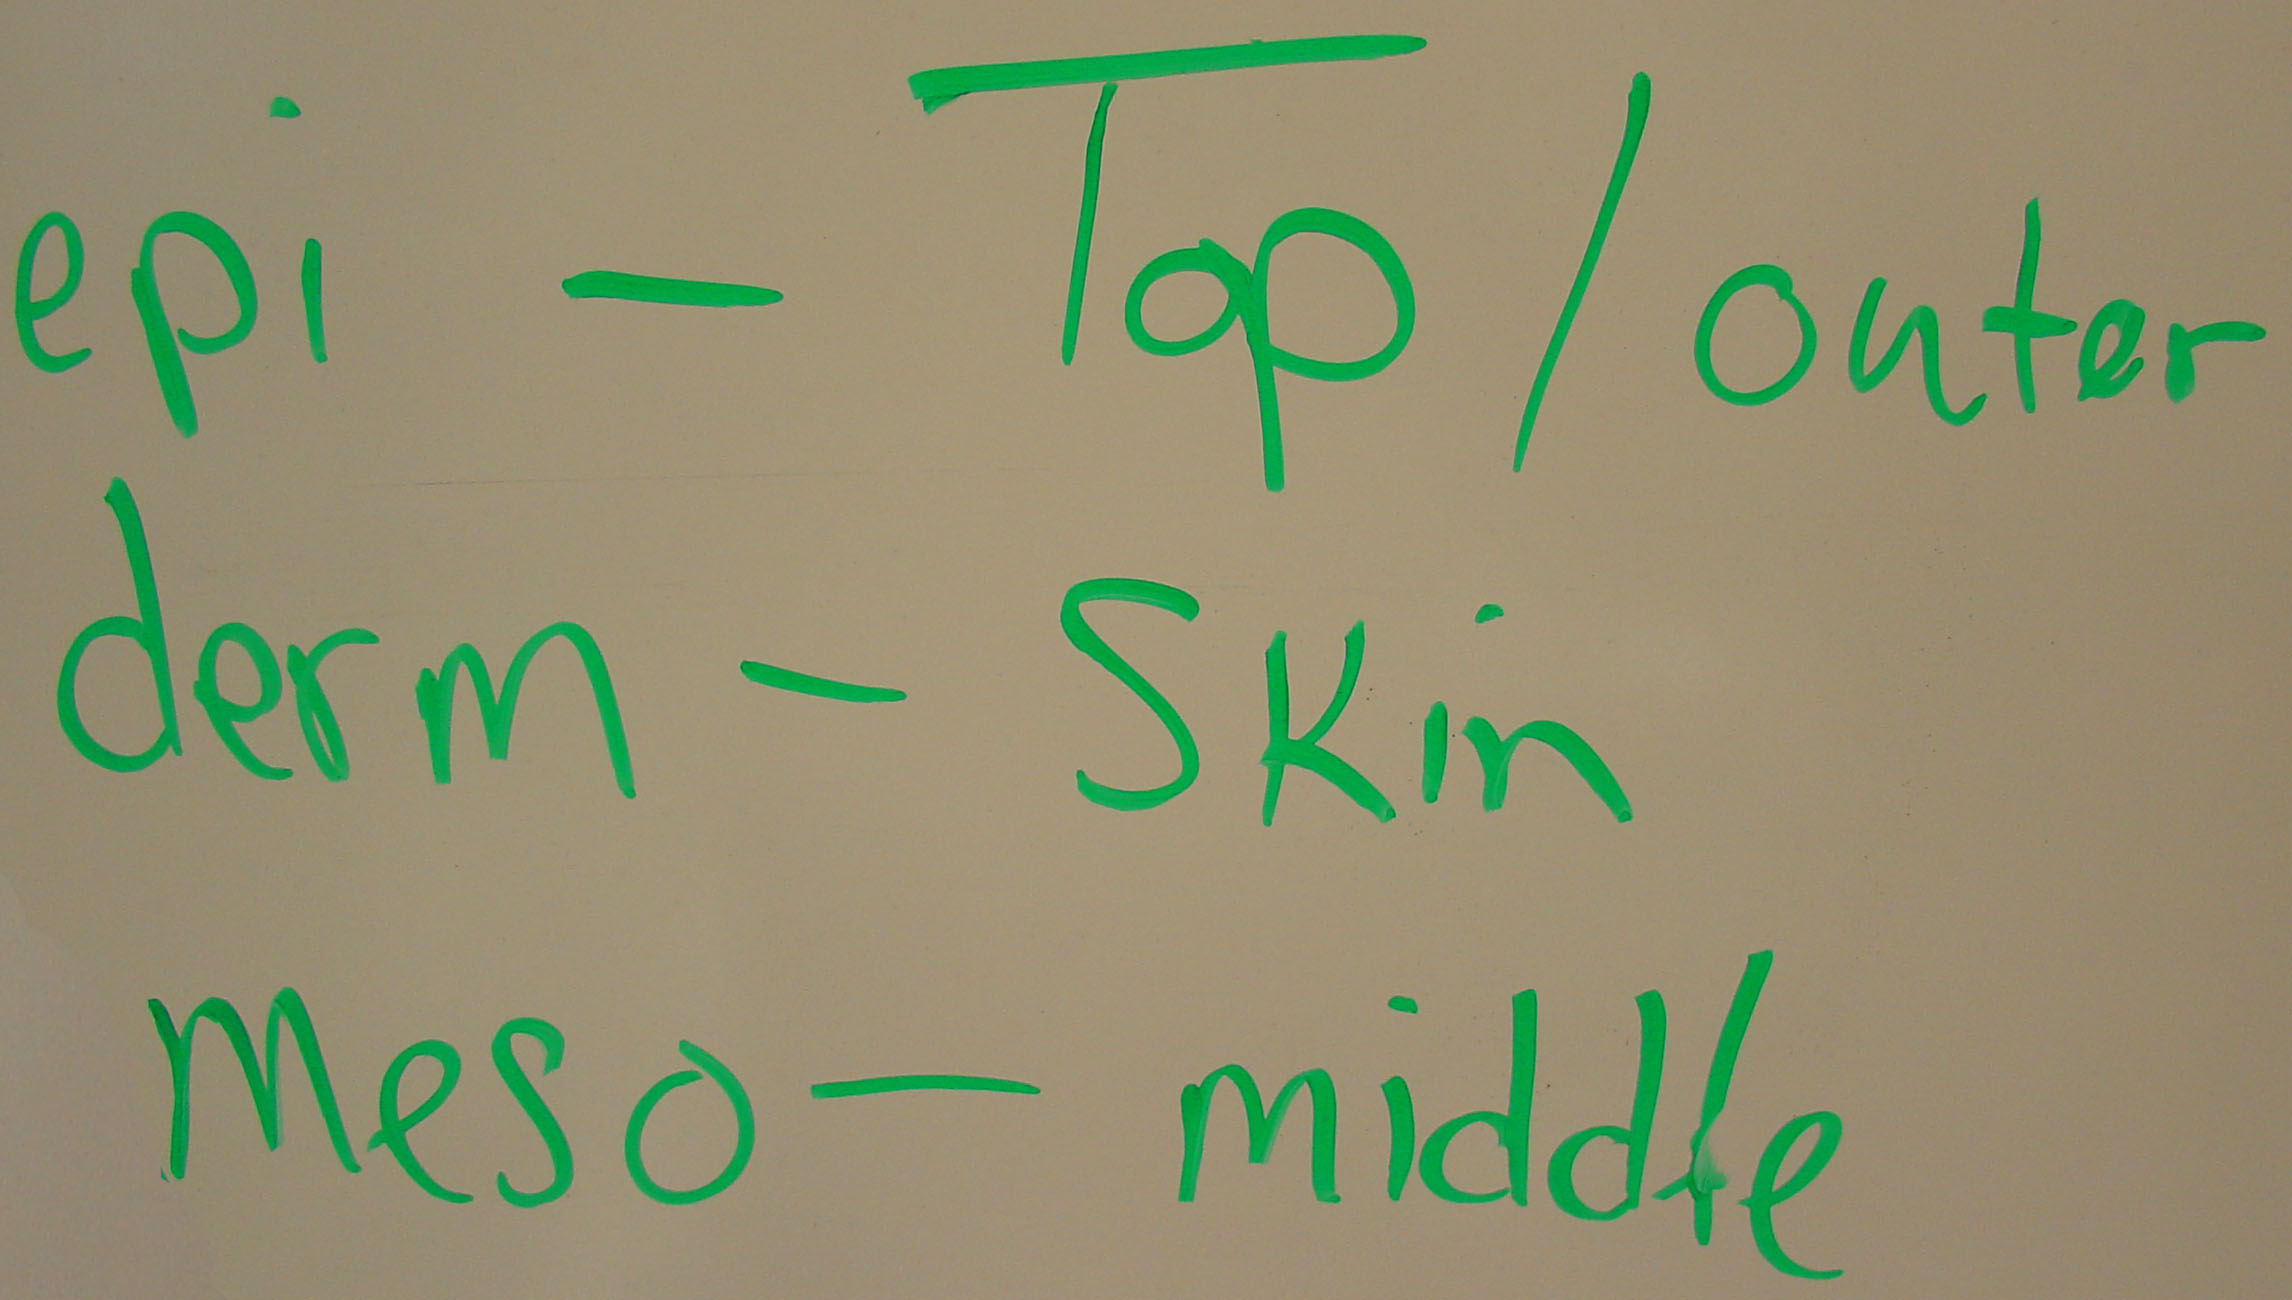 epi - Top / outer
derm - Skin
Meso - middle